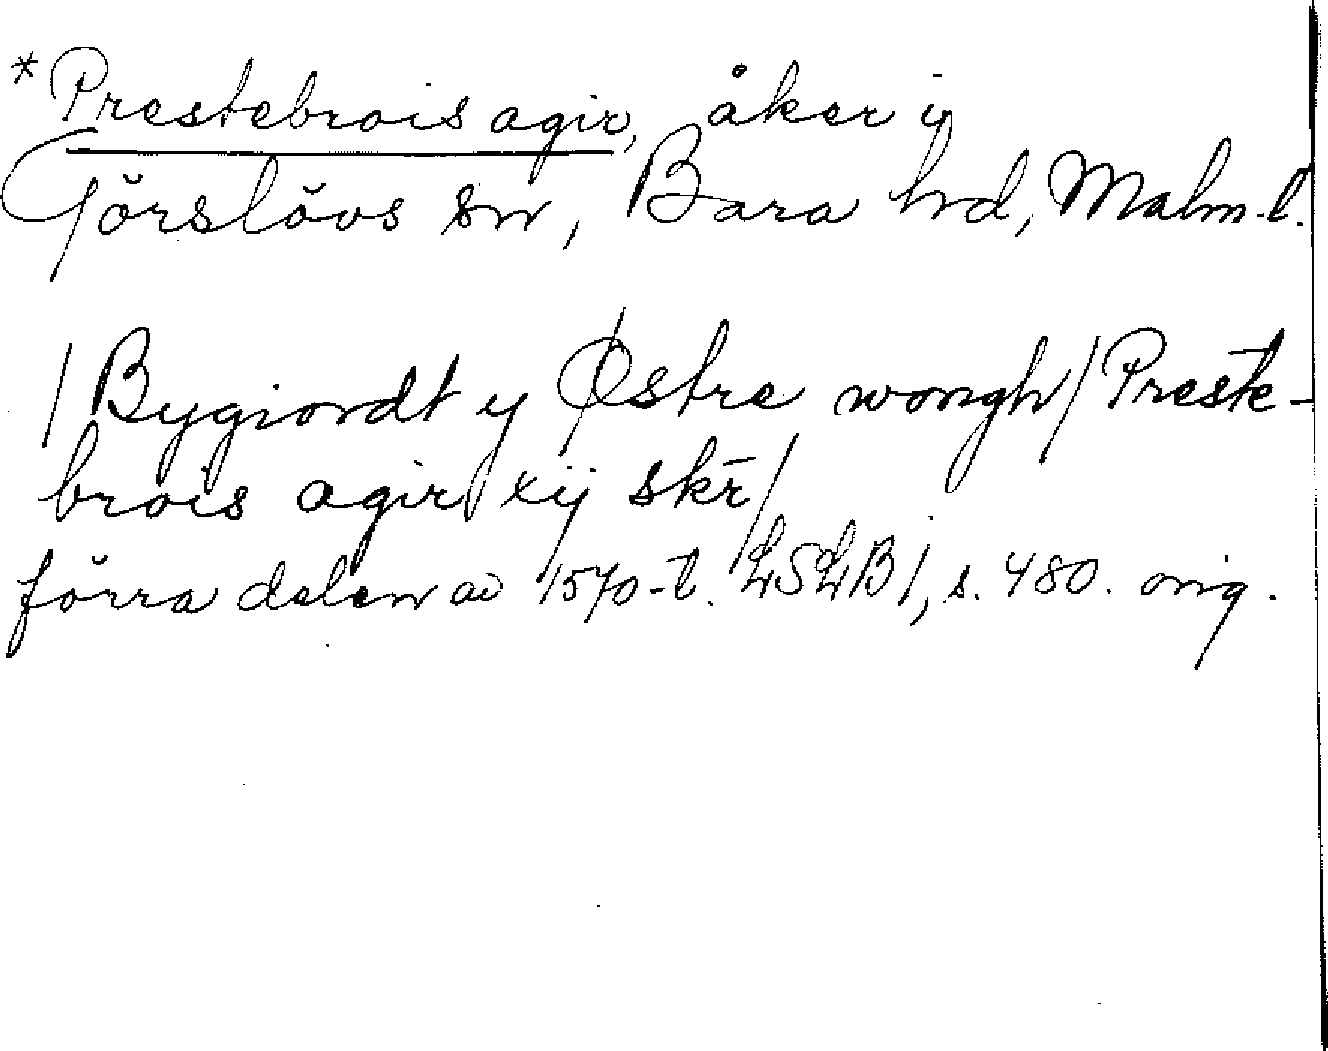 * Prestebrois agir, åker i
Görslövs sn, Bara hd, Malm. l.
/Bygiordt y Østre wongh/ Preste-
brois agir xij skr̄/
förra delen av 1570-t. LSLB1, s. 480. orig.